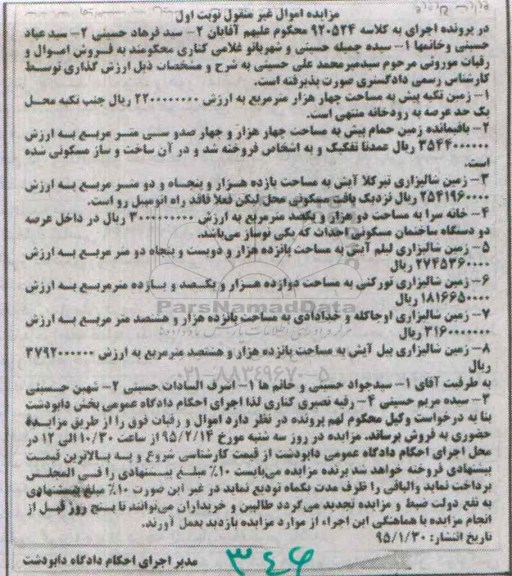 مزایده اموال غیر منقول نوبت اول
در پرونده اجرای به کلاسه ۹۲۰۵۲۴ محکوم علیهم آقایان ۲- سید فرهاد حسینی ۲- سید عباد
حسینی وخانمها ۱- سیده جمیله حسینی و شهربانو غلامی کناری محکومند به فروش اموال و
رقبات موروثی مرحوم سیدمیرمحمد علی حسینی به شرح و مشخصات ذیل ارزش گذاری توسط
کارشناس رسمی دادگستری صورت پذیرفته است.
۱- زمین تکیه پیش به مساحت چهار هزار مترمربع به ارزش ۲۲۰۰۰۰۰۰۰۰ ریال جنب تکیه محل
یک حد عرصه به رودخانه منتهی است.
۲- باقیمانده زمین حمام پیش به مساحت چهار هزار و چهار صدو سی متر مربع به ارزش
۳۵۴۴۰۰۰۰۰۰ ریال عمدتا تفکیک و به اشخاص فروخته شد و در آن ساخت و ساز مسکونی شده
است.
۳- زمین شالیزاری تیرکلا آیش به مساحت یازده هزار و پنجاه و دو متر مربع به ارزش
۲۵۴۱۹۶۰۰۰۰ ریال نزدیک بافت مسکونی محل لیکن فعلا فاقد راه اتومبیل رو است.
۴- خانه سرا به مساحت دو هزار و یکصد مترمربع به ارزش ۳۰۰۰۰۰۰۰۰۰ ریال در داخل عرصه
دو دستگاه ساختمان مسکونی احداث که یکی نوساز می‌باشد.
۵- زمین شالیزاری لیلم آیش به مساحت پانزده هزار و دویست و پنجاه دو متر مربع به ارزش
۲۷۴۵۳۶۰۰۰۰ ریال
۶- زمین شالیزاری تورکتی به مساحت دوازده هزار و یکصد و یازده مترمربع به ارزش
۱۸۱۶۶۵۰۰۰۰ ریال
۷- زمین شالیزاری اوجاکله و خدادادی به مساحت پانزده هزار و هشتصد متر مربع به ارزش
۳۱۶۰۰۰۰۰۰۰ ریال
۸- زمین شالیزاری بیل آیش به مساحت پانزده هزار و هشتصد مترمربع به ارزش ۳۷۹۲۰۰۰۰۰۰
ریال
به طرفیت آقای ۱- سیدجواد حسینی و خانم ها ۱- اشرف السادات حسینی ۲- شهین حسینی
۳- سیده مریم حسینی ۴- رقیه نصیری کناری لذا اجرای احکام دادگاه عمومی بخش دابودشت
بنا به درخواست وکیل محکوم لهم پرونده در نظر دارد اموال و رقبات فوق را از طریق مزایده
حضوری به فروش برساند. مزایده در روز سه شنبه مورخ ۹۵/۲/۱۴ از ساعت ۱۰/۳۰ الی ۱۲ در
محل اجرای احکام دادگاه عمومی دابودشت از قیمت کارشناسی شروع و به بالاترین قیمت
پیشنهادی فروخته خواهد شد برنده مزایده می‌بایست ۱۰٪ مبلغ پیشنهادی را فی المجلس
پرداخت نماید والباقی را ظرف مدت یکماه تودیع نماید در غیر این صورت ۱۰٪ مبلغ پیشنهادی
به نفع دولت ضبط و مزایده تجدید می‌گردد طالبین و خریداران می‌توانند تا پنج روز قبل از
انجام مزایده با هماهنگی این اجراء از موارد مزایده بازدید بعمل آورند.
تاریخ انتشار: ۹۵/۱/۳۰
مدیر اجرای احکام دادگاه دابودشت
۳۴۶
ParsNamadData
۰۲۱-۸۸۳۴۹۶۷۰-۵